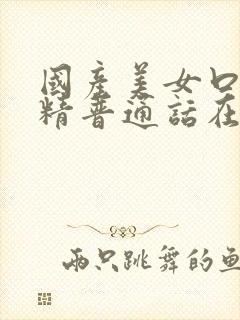 國產美女口
精普通話在
兩只跳舞的魚